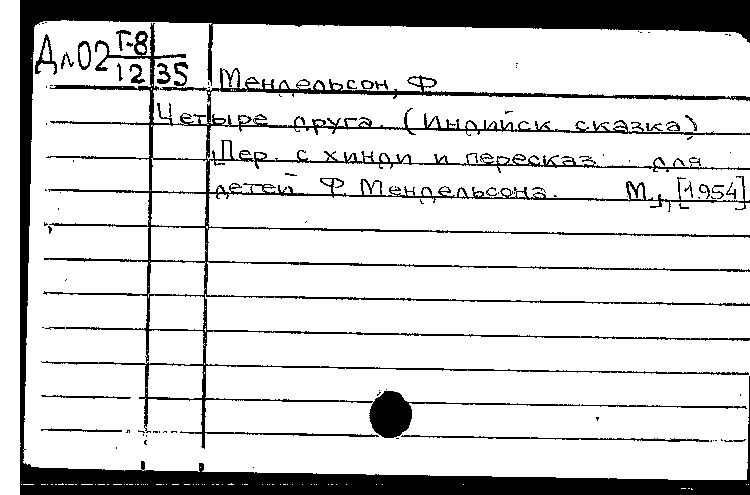 Дл02 Г-8
12 35
Мендельсон, Ф
Четыре друга. (Индийск. сказка)
Пер. с хинди и пересказ для
детей Ф. Мендельсона. М., [1954]